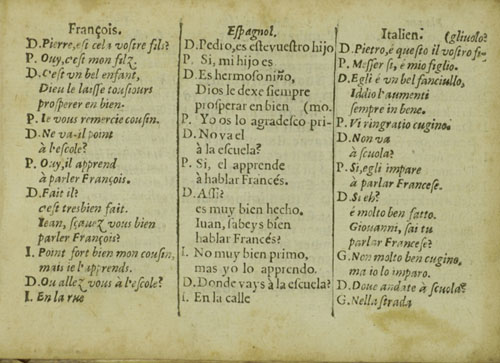 François.
D. Pierre, eſt cela voſtre fils?
P. Ouy, c'eſt mon filz.
D. C'eſt vn bel enfant,
Dieu le laiſſe touſiours
proſperer en bien.
P. Ie vous remercie couſin.
D. Ne va-il point
à l'eſcole?
P. Ouy, il apprend
à parler François.
D. Fait il?
c'eſt tresbien fait.
Iean, ſçauez vous bien
parler François?
I. Point fort bien mon couſin,
mais ie l'apprends.
D. Ou allez vous à l'eſcole?
I. En la rue
Eſpagnol.
D. Pedro, es eſte vueſtro hijo
P. Si, mi hijo es
D. Es hermoſo niño,
Dios le dexe ſiempre
proſperar en bien (mo.
P. Yo os lo agradeſco pri-
D. No va el
à la eſcuela?
P. Si, el apprende
à hablar Francés.
D. Aſſi?
es muy bien hecho.
Iuan, ſabeys bien
hablar Francés?
I. No muy bien primo,
mas yo lo aprendo.
D. Donde vays à la eſcuela?
I. En la calle
Italien. (gliuolo?
D. Pietro, è queſto il voſtro fi-
P. Meſſer ſi, è mio figlio.
D. Egli è vn bel fanciullo,
Iddio l'aumenti
ſempre in bene.
P. Vi ringratio cugino.
D. Non va
à ſcuola?
P. Si, egli impare
à parlar Franceſe.
D. Si eh?
è molto ben fatto.
Giouanni, ſai tu
parlar Franceſe?
G. Non molto ben cugino,
ma io lo imparo.
D. Doue andate à ſcuola?
G. Nella ſtrada